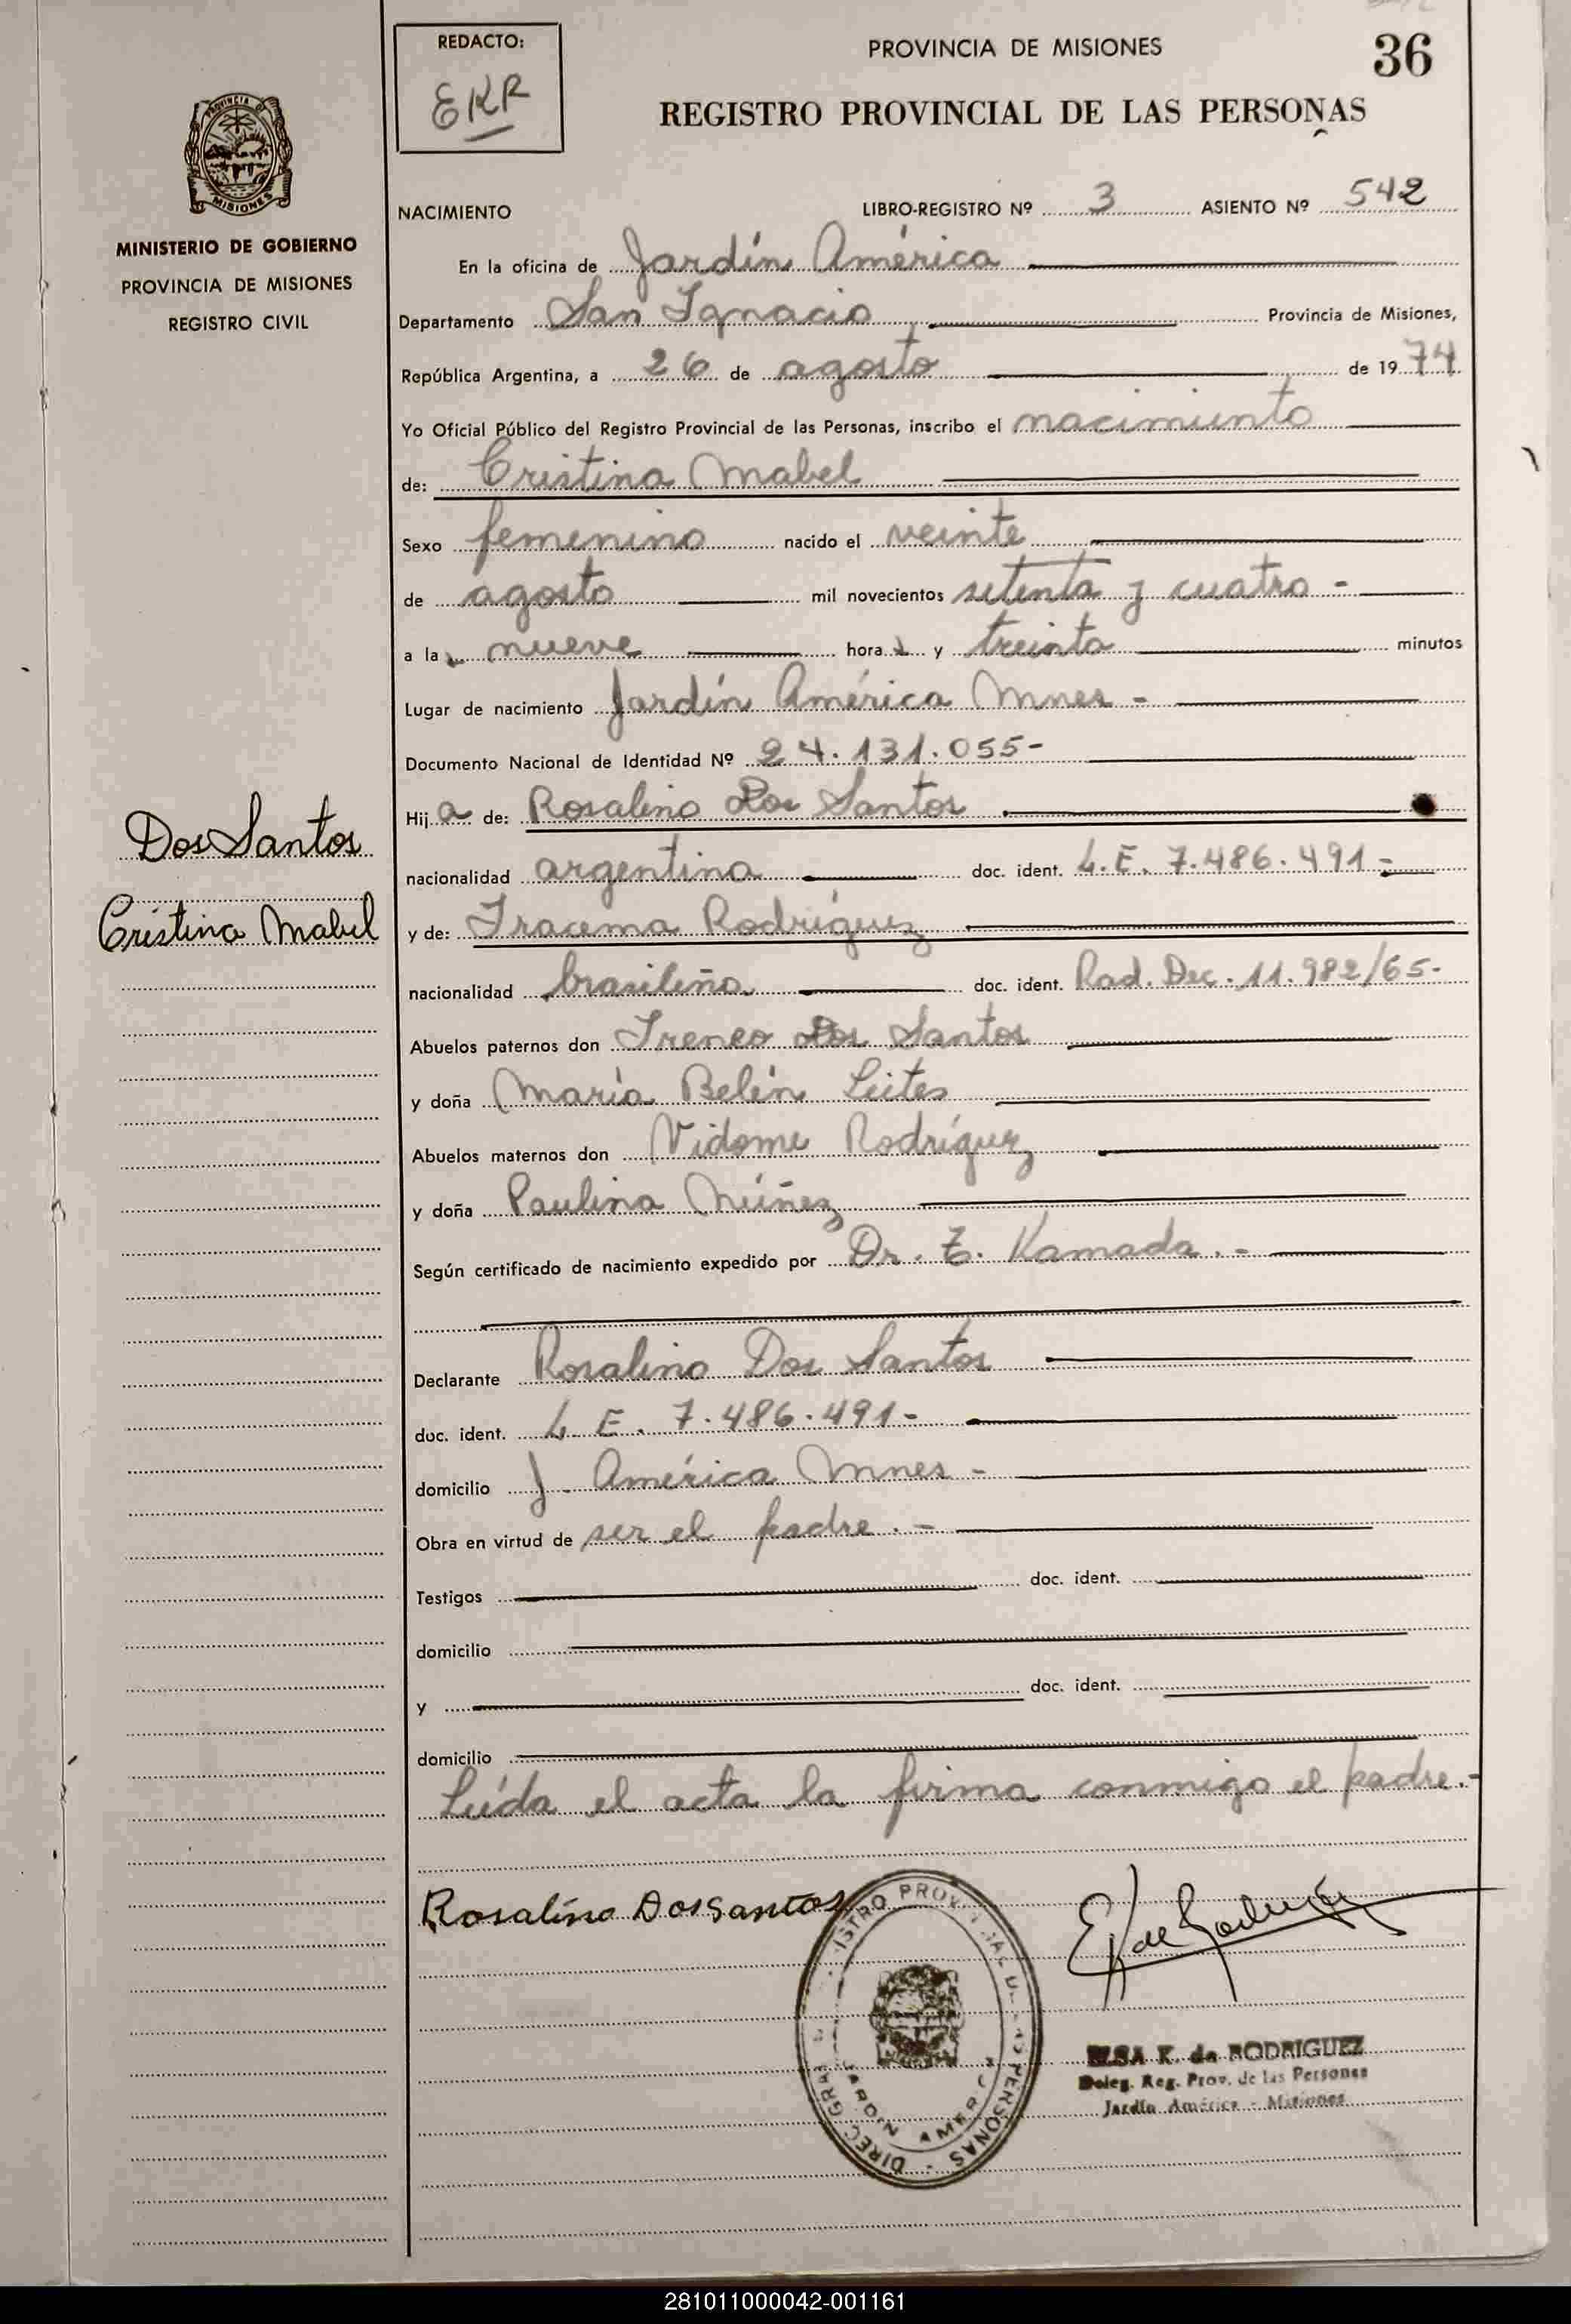 REDACTO:
EKR
PROVINCIA DE MISIONES
36
REGISTRO PROVINCIAL DE LAS PERSONAS
PROVINCIA DE
MISIONES
MINISTERIO DE GOBIERNO
PROVINCIA DE MISIONES
REGISTRO CIVIL
NACIMIENTO LIBRO-REGISTRO Nº 3 ASIENTO Nº 542
En la oficina de Jardín América
Departamento San Ignacio Provincia de Misiones,
República Argentina, a 26 de agosto de 1974
Yo Oficial Público del Registro Provincial de las Personas, inscribo el nacimiento
de: Cristina Mabel
Sexo femenino nacido el veinte
de agosto mil novecientos setenta y cuatro -
a las nueve horas y treinta minutos
Lugar de nacimiento Jardín América Mnes -
Documento Nacional de Identidad Nº 24.131.055-
Hija de: Rosalino Dos Santos
Dos Santos
Cristina Mabel
nacionalidad argentina doc. ident. L.E. 7.486.491-
y de: Iracema Rodríguez
nacionalidad brasileña doc. ident. Rad. Dec. 11.982/65-
Abuelos paternos don Ireneo Dos Santos
y doña María Belén Leites
Abuelos maternos don Vidome Rodríguez
y doña Paulina Núñez
Según certificado de nacimiento expedido por Dr. Z. Kamada.-
Declarante Rosalino Dos Santos
doc. ident. L.E. 7.486.491-
domicilio J. América Mnes -
Obra en virtud de ser el padre.-
Testigos doc. ident.
domicilio
y doc. ident.
domicilio
Leída el acta la firma conmigo el padre.-
Rosalino Dos Santos
JARDIN AMERICA
ELSA K. de RODRIGUEZ
Deleg. Reg. Prov. de las Personas
Jardín América - Misiones
281011000042-001161